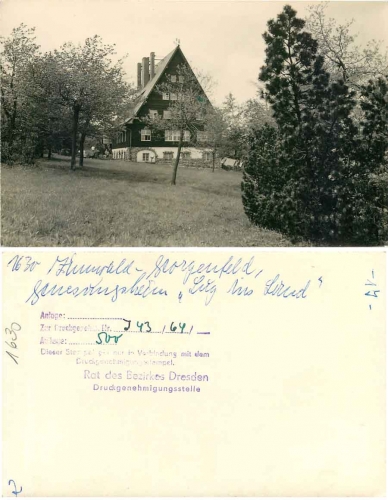 1630 Zinnwald-Georgenfeld,
Genesungsheim „Lug ins Land"
-15-
1630
Anlage:
Zur Druckgenehm. Nr. J 43/64/
Auflage: 500
Dieser Stempel gilt nur in Verbindung mit dem
Druckgenehmigungsstempel.
Rat des Bezirkes Dresden
Druckgenehmigungsstelle